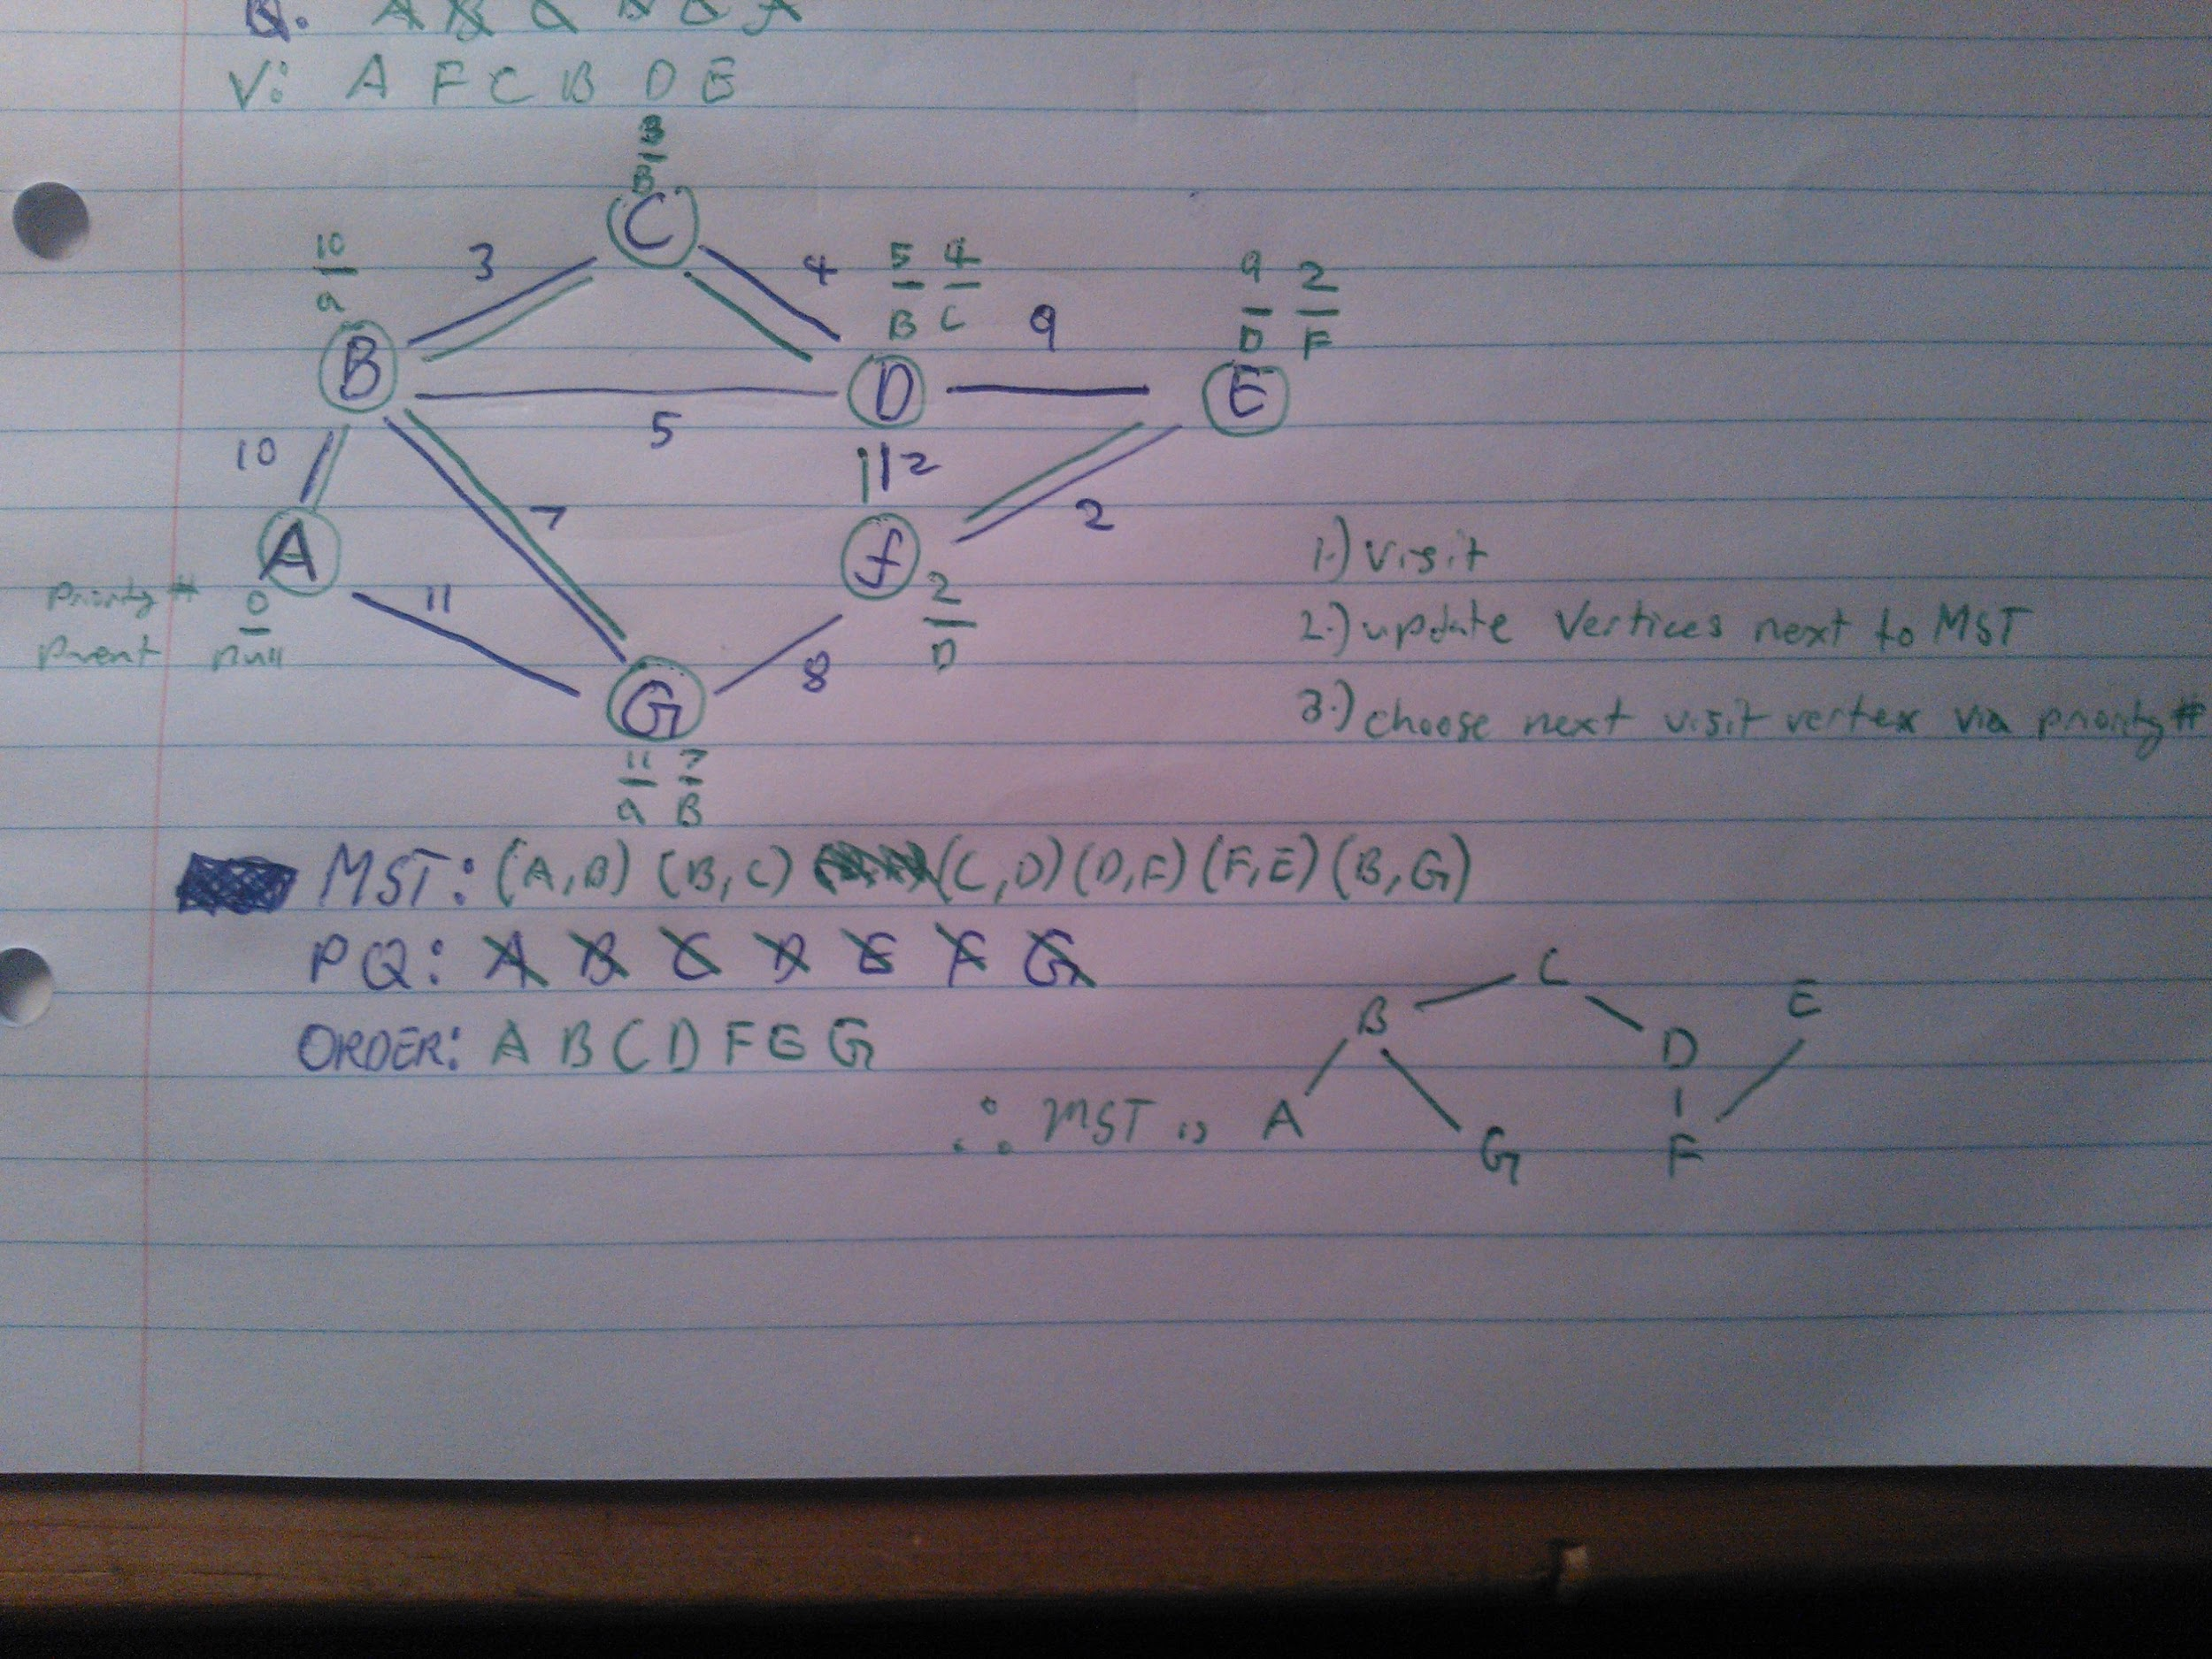 Q: A B C D E F
V: A F C B D E
3
B
C
10
a
3
4
5 4
B C
9
9 2
D F
B
D
E
5
10
2
7
2
A
f
Priority # 0
Parent null
11
2
D
8
G
11 7
a B
1.) visit
2.) update vertices next to MST
3.) choose next visit vertex via priority #
MST: (A,B) (B,C) (C,D) (D,F) (F,E) (B,G)
PQ: A B C D E F G
ORDER: A B C D F E G
∴ MST is
C
B
E
D
A
G
F